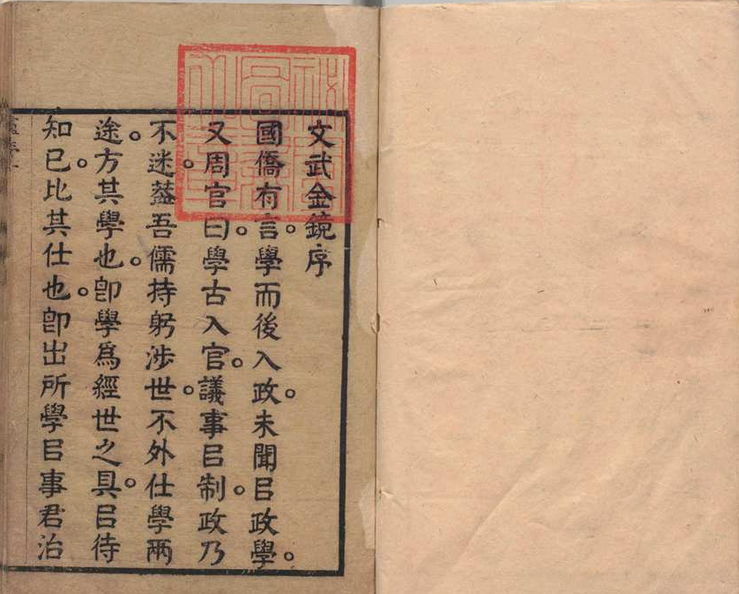 文武金鏡序
國僑有言。學而後入政。未聞㠯政學。
又周官曰。學古入官。議事㠯制。政乃
不迷。葢吾儒持躬涉世。不外仕學兩
途。方其學也。卽學爲經世之具。㠯待
知已。比其仕也。卽出所學㠯事君治